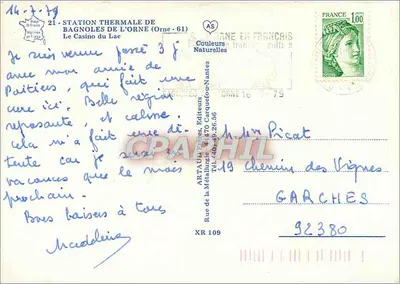 14-7-79
21 - STATION THERMALE DE
BAGNOLES DE L'ORNE (Orne - 61)
Le Casino du Lac
AS
Couleurs
Naturelles
EN FRANÇAIS
16 79
FRANCE
1,00
Je suis venue passé 3 j
avec mon amie de
Poitiers, qui fait une
cure ici. Belle région
reposante, et calme.
cela m'a fait une dé-
tente car je suis en
vacances que le mois
prochain.
Bons baisers à tous
Madeleine
ARTAUD Frères, Editeurs
Rue de la Métallurgie, 44470 Carquefou-Nantes
Tél. (40) 49.26.56
XR 109
CPARAMA
M. Mme Picat
19 Chemin des Vignes
GARCHES
92380